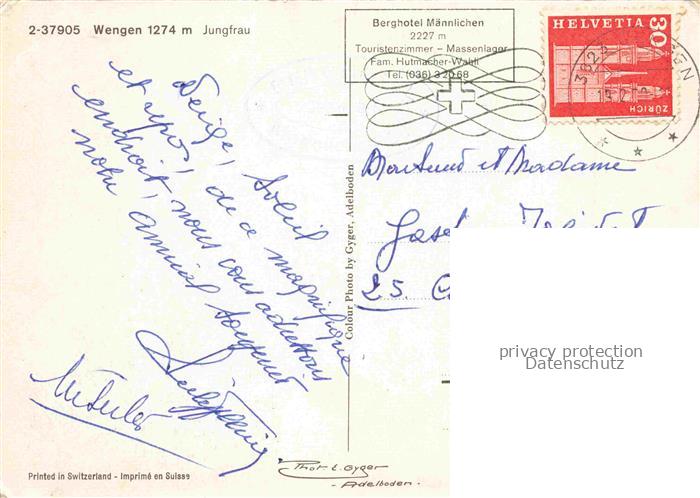 2-37905 Wengen 1274 m Jungfrau
Berghotel Männlichen
2227 m
Touristenzimmer – Massenlager
Fam. Hutmacher-Wahli
Tel. (036) 3 20 68
HELVETIA 30
ZÜRICH
Neige, soleil
et repos! de ce magnifique
endroit, nous vous adressons
notre amical souvenir
Monsieur et Madame
25
Colour Photo by Gyger, Adelboden
privacy protection
Datenschutz
Printed in Switzerland - Imprimé en Suisse
Phot. E. Gyger
- Adelboden -